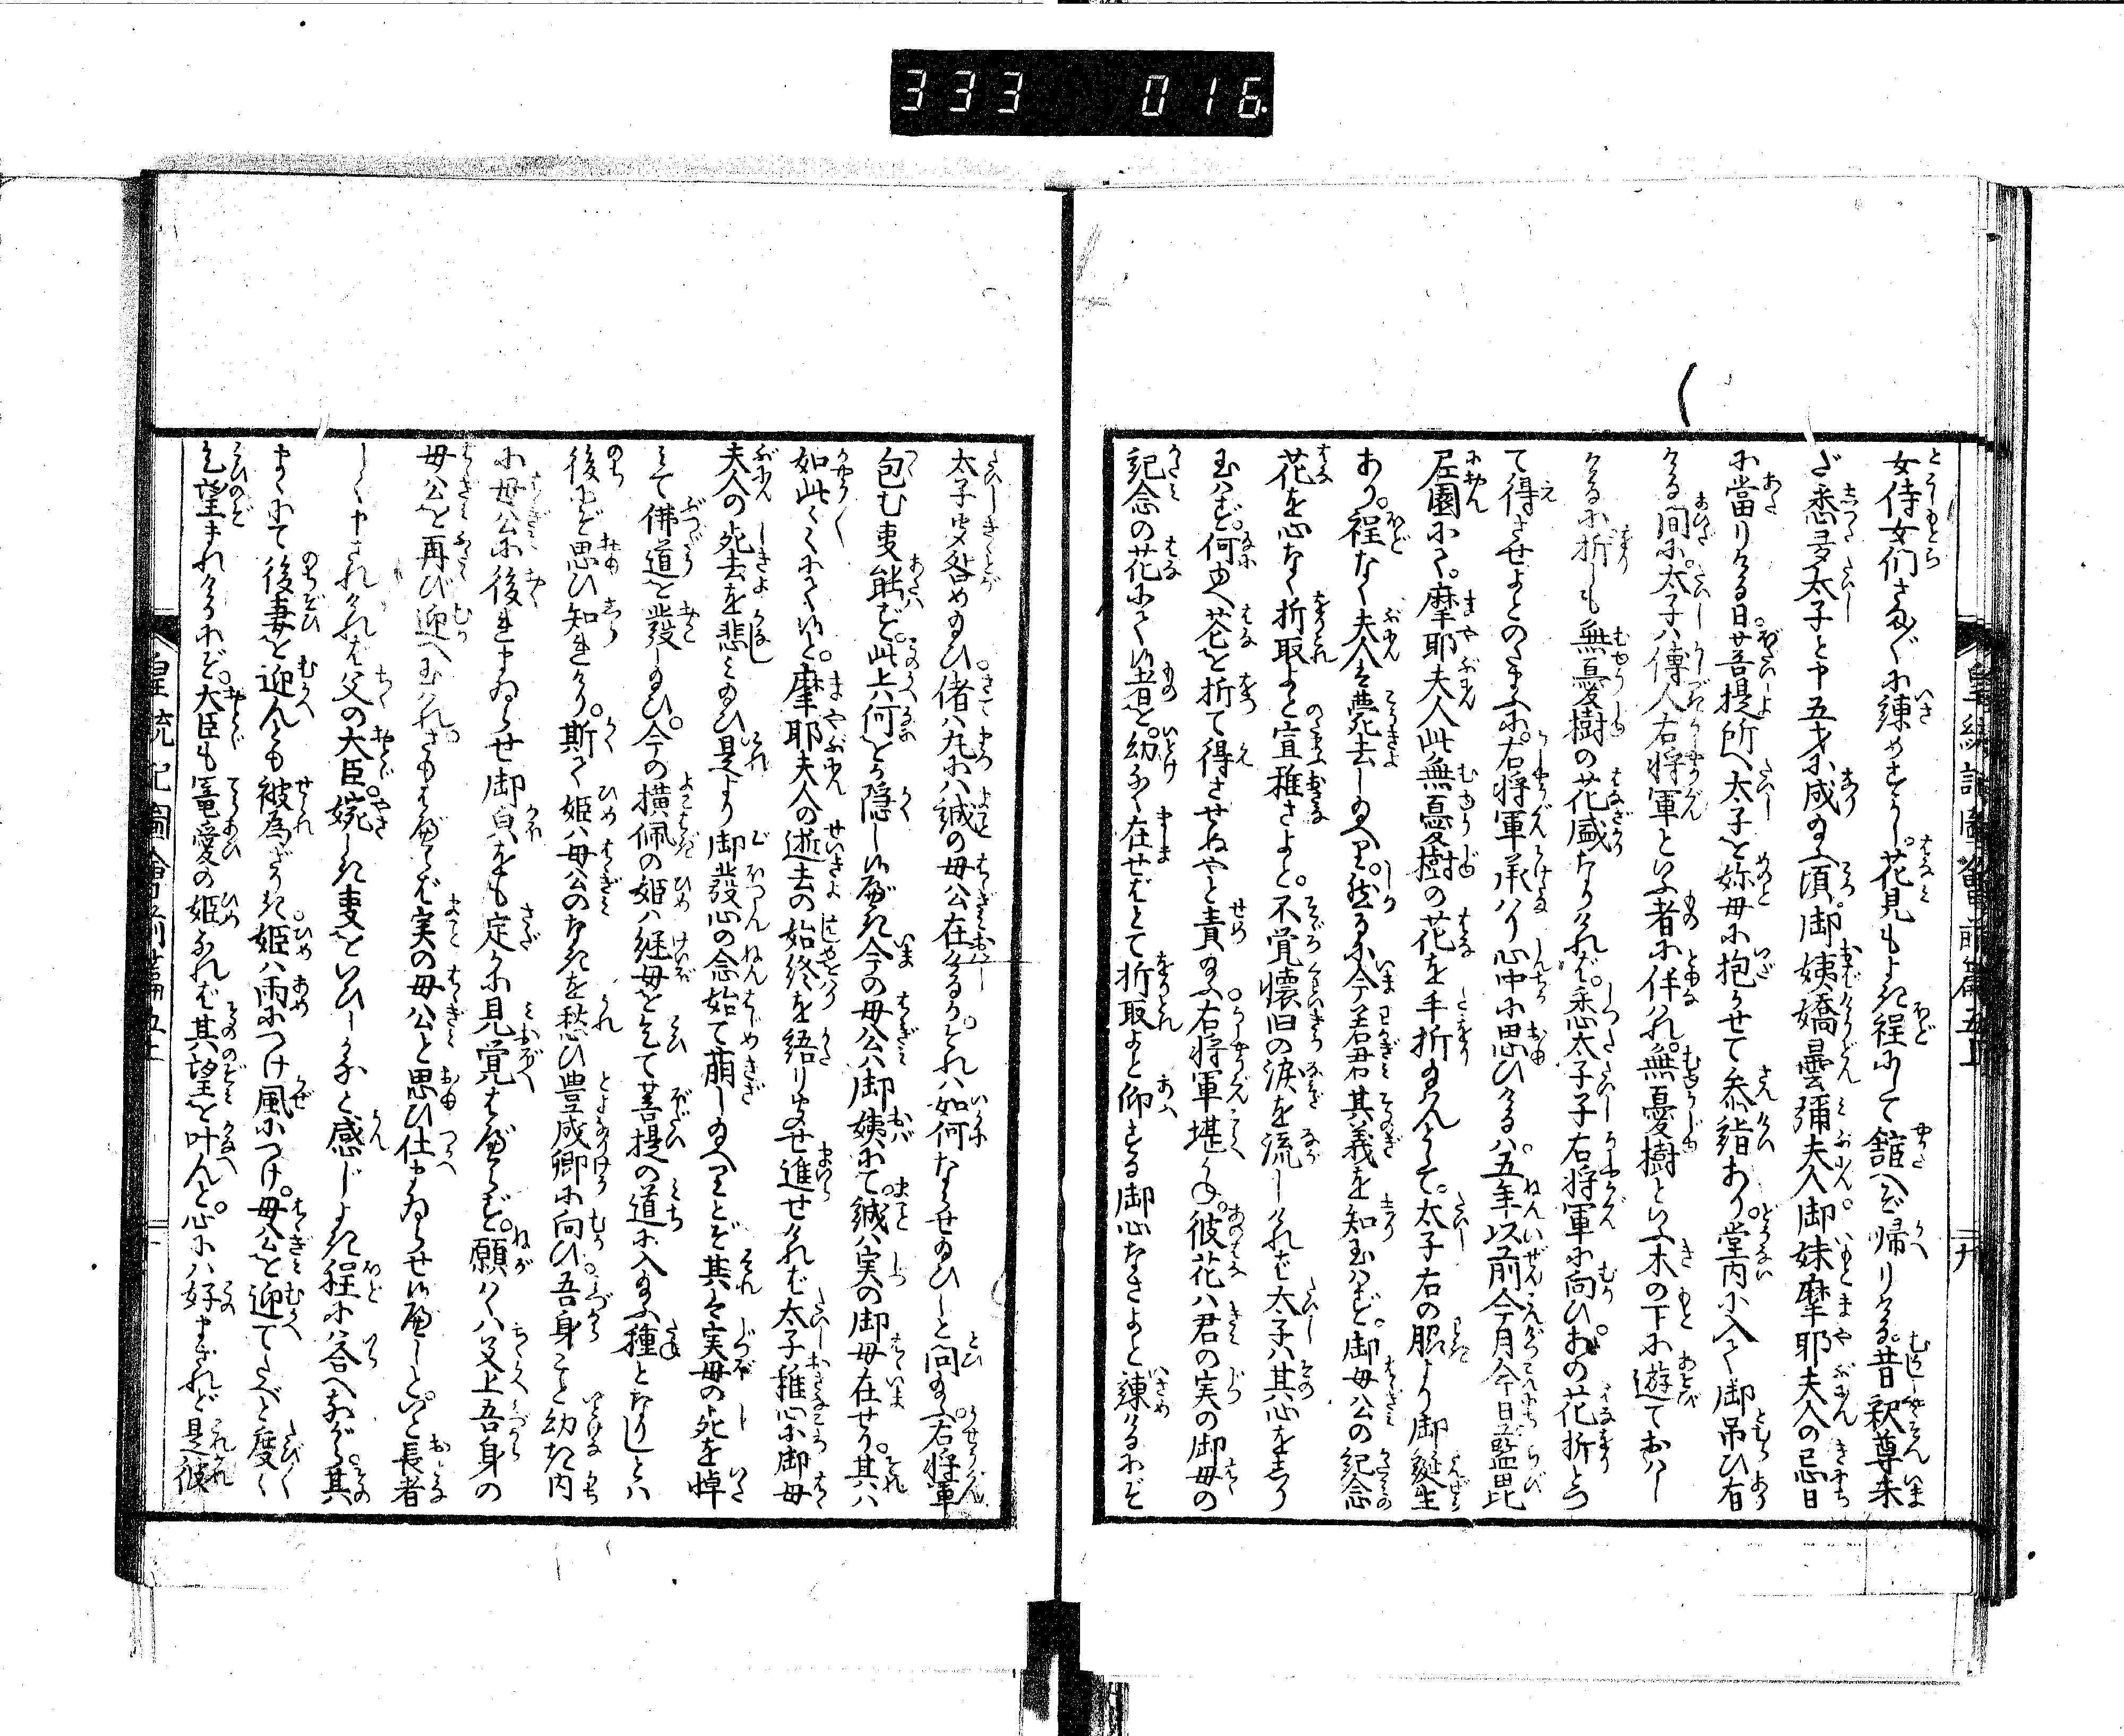 333 016.
女侍女們さま〴〵に諫めすかし。花見もよき程にして舘へぞ帰りける。昔釈尊未
だ悉多太子と申五才に成玉ふ頃。御姨嬌曇彌夫人御妹摩耶夫人の忌日
に當りける日。菩提所へ太子を妳母に抱かせて参詣あり。堂内に入て御吊ひ有
ける間に。太子ハ傳人右将軍といふ者に伴はれ。無憂樹といふ木の下に遊ておハし
けるに折しも無憂樹の花盛なりけれバ。悉太子子右将軍に向ひ。あの花折とつ
て得させよとのたまふに。右将軍承ハり心中に思ひけるハ。五年以前今月今日藍毘
尼園にて。摩耶夫人此無憂樹の花を手折玉ハんとて。太子右の脇より御誕生
あり。程なく夫人ハ薨去し玉へり。然るに今若君其義を知玉ハず。御母公の紀念
花を心なく折取よと宣稚さよと。不覚懐旧の涙を流しけれバ太子ハ其心をしり
玉ハず。何ゆへ花を折て得させねやと責玉ふ。右将軍堪かね。彼花ハ君の実の御母の
記念の花にて候者を。幼なく在せばとて折取よと仰する御心なさよと諫けるにぞ
皇統記圖會前篇五上
九
太子聞咎め玉ひ偖ハ九にハ誠の母公在けるか。それハ如何なせ玉ひしと問玉ふ。右将軍
包む事能ず。此上ハ何をか隠し候べき今の母公ハ御姨にて誠ハ実の御母在せり。其ハ
如此〳〵にて候と。摩耶夫人の逝去の始終を語り聞せ進せけれバ太子稚心に御母
夫人の死去を悲ミ玉ひ是より御發心の念始て萠し玉へりとぞ其ハ実母の死を悼
ミて佛道を發し玉ひ。今の横佩の姫ハ継母を乞て菩提の道に入玉ふ種となりしとハ
後にぞ思ひ知れける。斯て姫ハ母公のなきを愁ひ豊成卿に向ひ。吾身こと幼き内
に母公に後れまゐらせ御皃をも定かに見覚はべらず。願ハくハ父上吾身の
母公を再び迎へ玉ハれ。さもはべらバ実の母公と思ひ仕まゐらせ候べしと。いと長者
しく申されけれバ父の大臣。婉しき事をいひしかなと感じよき程に答へながら。其
まゝにて後妻を迎んとも被為ざりき。姫ハ雨につけ風につけ。母公を迎てたべと度〳〵
乞望まれけるにぞ。大臣も寵愛の姫なれバ其望を叶んと。心にハ好まざれど是彼
皇統記圖會前篇五上